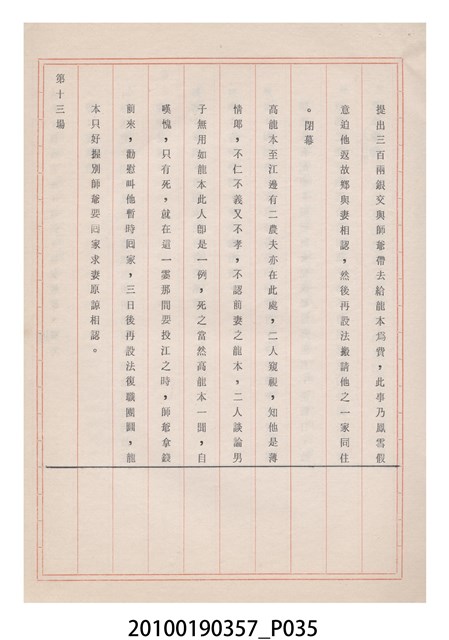 提出三百兩銀交與師爺帶去給龍本為費，此事乃鳳雪假
意迫他返故鄉與妻相認，然後再設法搬請他之一家同住
。閉幕
高龍本至江邊有二農夫亦在此處，二人窺視，知他是薄
情郎，不仁不義又不孝，不認前妻之龍本，二人談論男
子無用如龍本此人卽是一例，死之當然高龍本一聞，自
嘆愧，只有死，就在這一霎那間要投江之時，師爺拿錢
前來，勸慰叫他暫時囘家，三日後再設法復職團圓，龍
本只好握別師爺要囘家求妻原諒相認。
第十三場
20100190357_P035